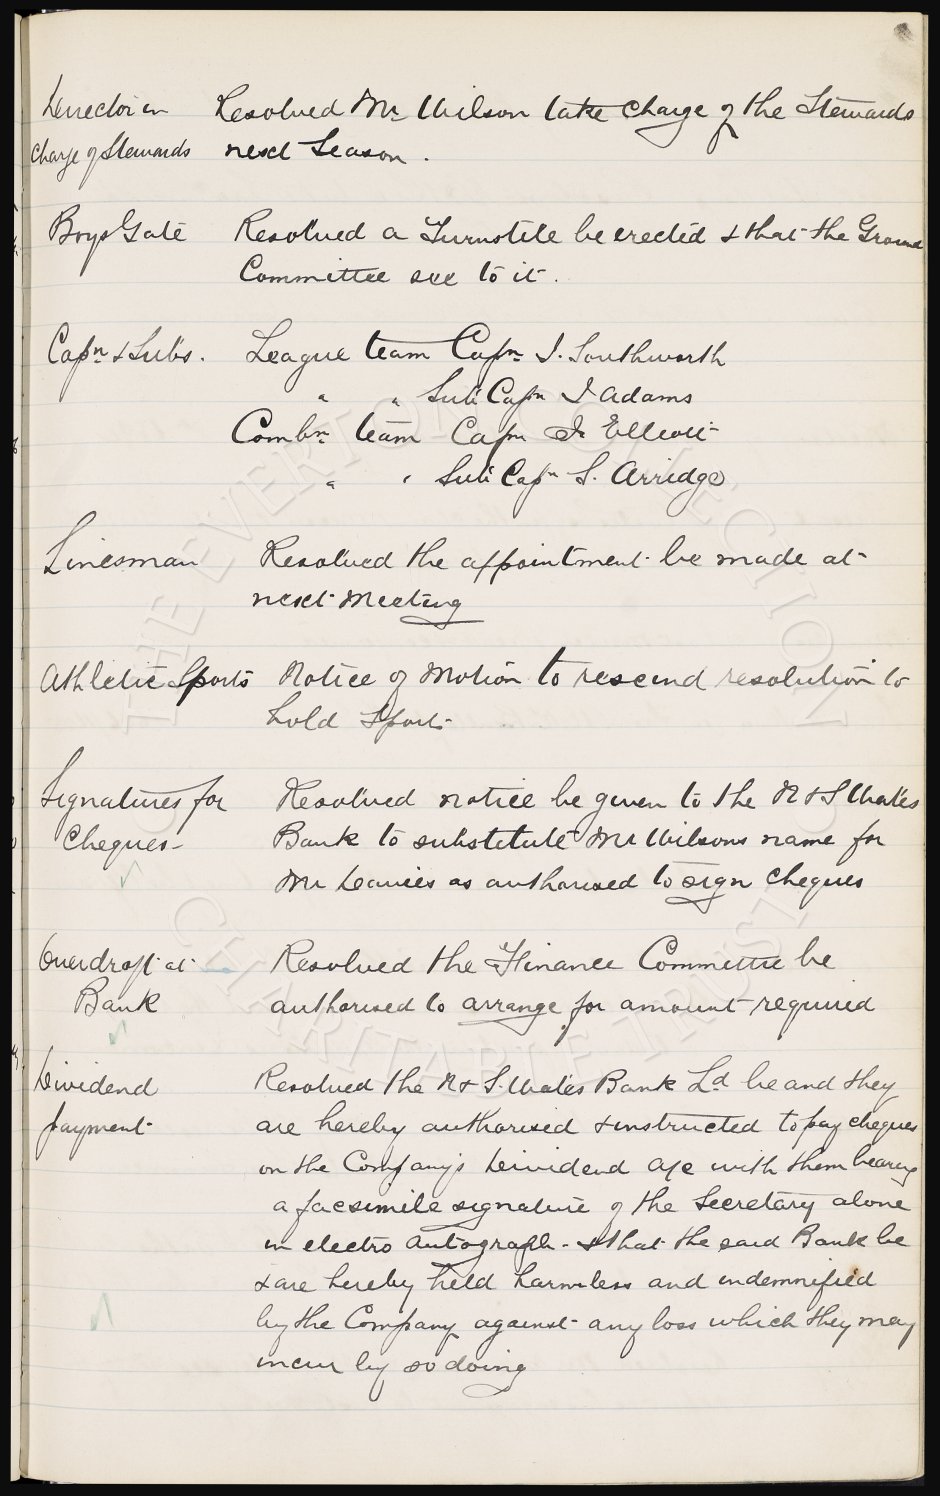 Director in Resolved Mr Wilson take charge of the Stewards
charge of Stewards next Season.
Boys Gate Resolved a Turnstile be erected & that the Ground
Committee see to it.
Capn & Subs. League team Capn J. Southworth
" " Sub Capn J Adams
Combn team Capn J. Elliott
" " Sub Capn S. Arridge
Linesman Resolved the appointment be made at
next Meeting
Athletic Sports Notice of Motion to rescind resolution to
hold Sports
Signatures for Resolved notice be given to the N & S Wales
Cheques Bank to substitute Mr Wilsons name for
Mr Davies as authorised to sign cheques
Overdraft at Resolved the Finance Committee be
Bank authorised to arrange for amount required
Dividend Resolved the N & S. Wales Bank Ld be and they
payment are hereby authorised & instructed to pay cheques
on the Company's Dividend a/c with them bearing
a facsimile signature of the Secretary alone
in electro autograph - & that the said Bank be
& are hereby held harmless and indemnified
by the Company against any loss which they may
incur by so doing
THE EVERTON COLLECTION
CHARITABLE TRUST